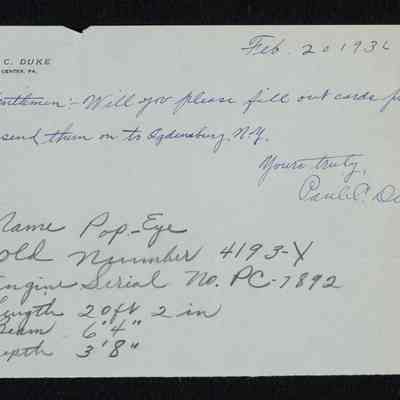 C. DUKE
CENTER, PA.
Feb. 20 1936
Gentlemen:- Will you please fill out cards
send them on to Ogdensburg, N.Y.
Yours truly,
Paul C. Du
Name Pop-Eye
old Nummber 4193-X
Engine Serial No. PC-7892
Length 20ft 2 in
Beam 6'4"
Depth 3'8"